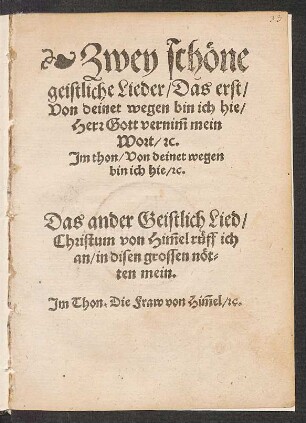 Zwey schöne
geistliche Lieder/Das erst/
Von deinet wegen bin ich hie/
Herr Gott vernim̃ mein
Wort/ ꝛc.
Im thon/Von deinet wegen
bin ich hie/ꝛc.
Das ander Geistlich Lied/
Christum von Him̃el rüff ich
an/in disen grossen nöt-
ten mein.
Im Thon. Die Fraw von Him̃el/ꝛc.